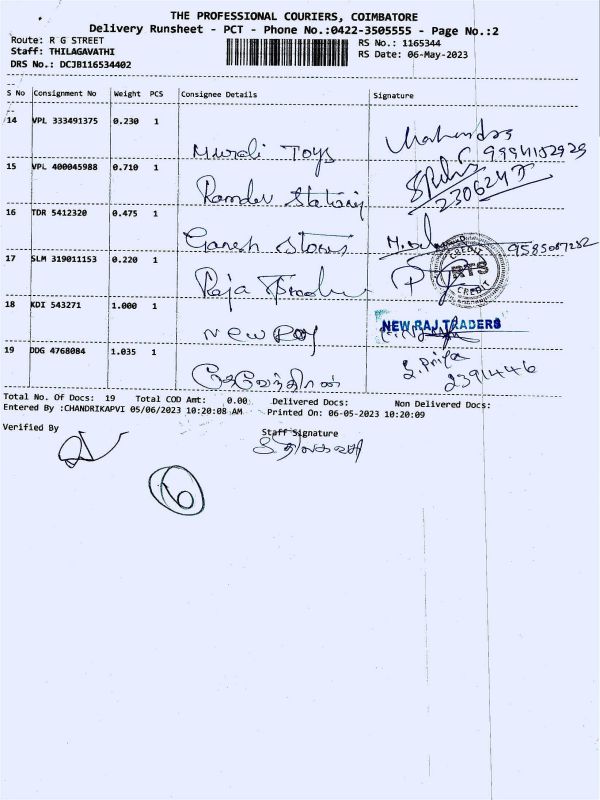 THE PROFESSIONAL COURIERS, COIMBATORE
Delivery Runsheet - PCT - Phone No.:0422-3505555 - Page No.:2
Route: R G STREET RS No.: 1165344
Staff: THILAGAVATHI RS Date: 06-May-2023
DRS No.: DCJB116534402
S No Consignment No Weight PCS Consignee Details Signature
14 VPL 333491375 0.230 1
Murali Toys Mahendra 9994152929
15 VPL 400045988 0.710 1
Ramdev 230624
16 TDR 5412320 0.475 1
Ganesh Stores 9585087282
17 SLM 319011153 0.220 1 CREDIT RTS CREDIT
Raja
18 KDI 543271 1.000 1 NEW RAJ TRADERS
New Roy
19 DDG 4768084 1.035 1 S. Priya
2391446
Total No. Of Docs: 19 Total COD Amt: 0.00 Delivered Docs: Non Delivered Docs:
Entered By :CHANDRIKAPVI 05/06/2023 10:20:08 AM Printed On: 06-05-2023 10:20:09
Verified By Staff Signature
6